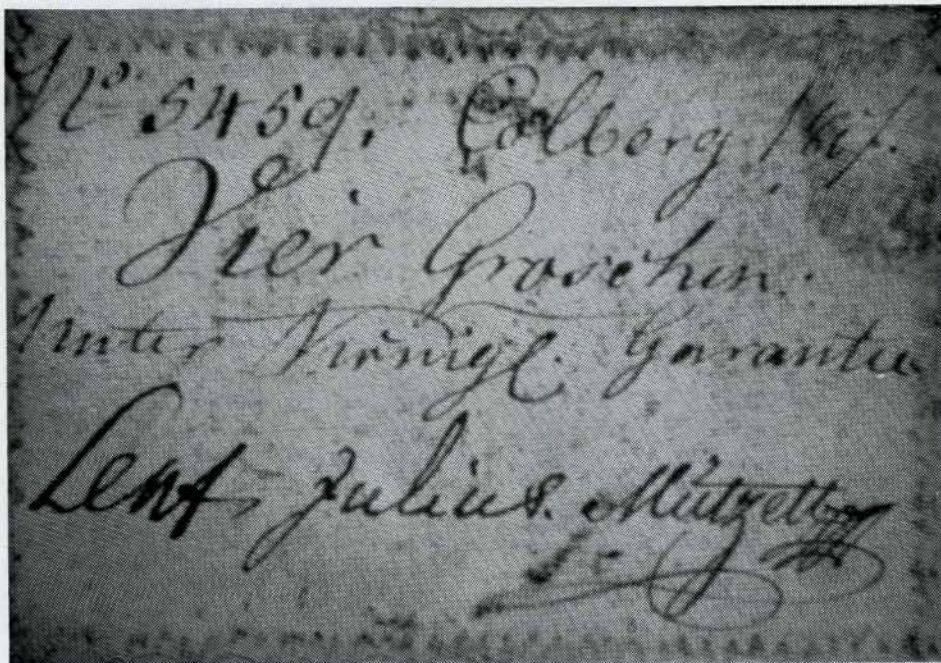 No 5459. Colberg 1807.
Vier Groschen.
Unter Königl. Garantie
Lent. Julius. Mützell